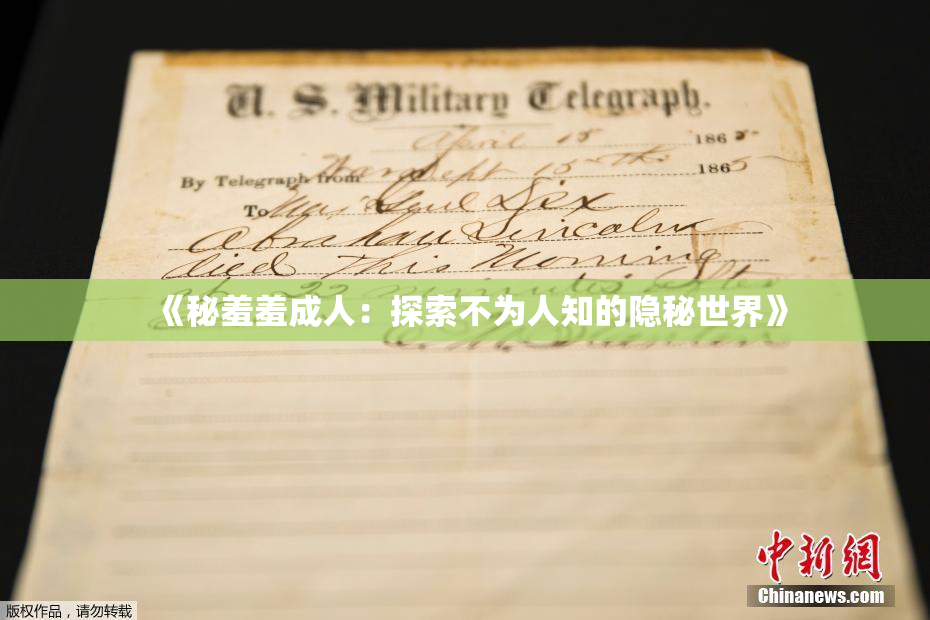 U. S. Military Telegraph.
April 15 1865
By Telegraph from War Dept 15th 1865
To Maj Genl Dix
Abraham Lincoln
died This Morning
at 22 minutes after
《秘羞羞成人：探索不为人知的隐秘世界》
E. M. Stanton
中新网
Chinanews.com
版权作品，请勿转载